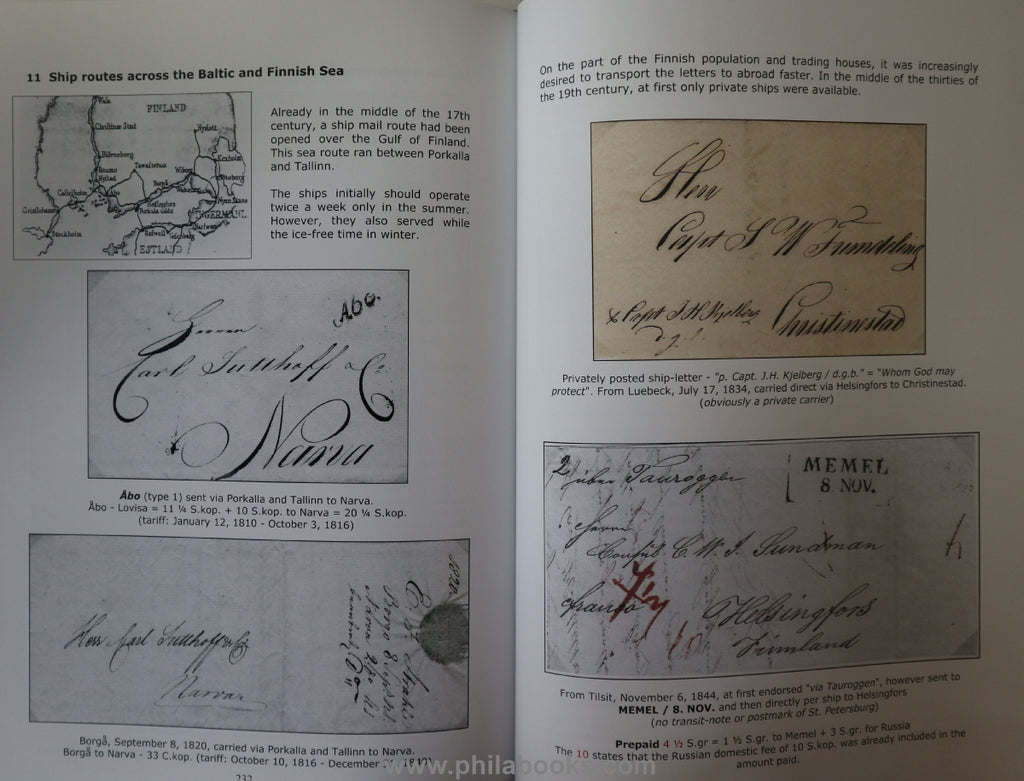 11 Ship routes across the Baltic and Finnish Sea
FINLAND
Christinæ Stad
Björneborg
Raumo
Nystad
Tawastehus
Nyslott
Kexholm
Wiborg
Borgå
Åbo
Castelholm
Helsingfors
Porkala udd
Grislehamn
Stockholm
Narva
ESTLAND
Already in the middle of the 17th
century, a ship mail route had been
opened over the Gulf of Finland.
This sea route ran between Porkalla
and Tallinn.
The ships initially should operate
twice a week only in the summer.
However, they also served while
the ice-free time in winter.
Åbo.
Herren
Carl Sutthoff & Co
Narva
Åbo (type 1) sent via Porkalla and Tallinn to Narva.
Åbo - Lovisa = 11 ¼ S.kop. + 10 S.kop. to Narva = 20 ¼ S.kop.
(tariff: January 12, 1810 - October 3, 1816)
Herr Carl Sutthoff & Co
Narva
1820
Borgo 8
Narva
Borgå, September 8, 1820, carried via Porkalla and Tallinn to Narva.
Borgå to Narva - 33 C.kop. (tariff: October 10, 1816 - December
232
On the part of the Finnish population and trading houses, it was increasingly
desired to transport the letters to abroad faster. In the middle of the thirties of
the 19th century, at first only private ships were available.
Herr
Capt S W
Christinestad
p Capt J H Kjelberg
d. g. b.
Privately posted ship-letter - "p. Capt. J.H. Kjelberg / d.g.b." = "Whom God may
protect". From Luebeck, July 17, 1834, carried direct via Helsingfors to Christinestad.
(obviously a private carrier)
2
über Tauroggen
MEMEL
8. NOV.
Herrn
Consul C. W. I. Sundman
franco
4½
10
Helsingfors
Finnland
From Tilsit, November 6, 1844, at first endorsed "via Tauroggen", however sent to
MEMEL / 8. NOV. and then directly per ship to Helsingfors
(no transit-note or postmark of St. Petersburg)
Prepaid 4 ½ S.gr = 1 ½ S.gr. to Memel + 3 S.gr. for Russia
The 10 states that the Russian domestic fee of 10 S.kop. was already included in the
amount paid.
www.philabooks.com